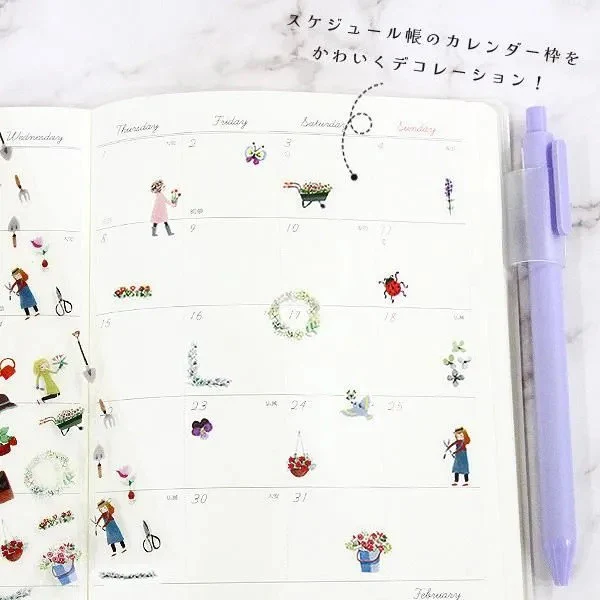 スケジュール帳のカレンダー枠を
かわいくデコレーション！
Wednesday
Thursday Friday Saturday Sunday
1 2 3
8 9 10 11
15 16 17 18
23 24 25
30 31
February